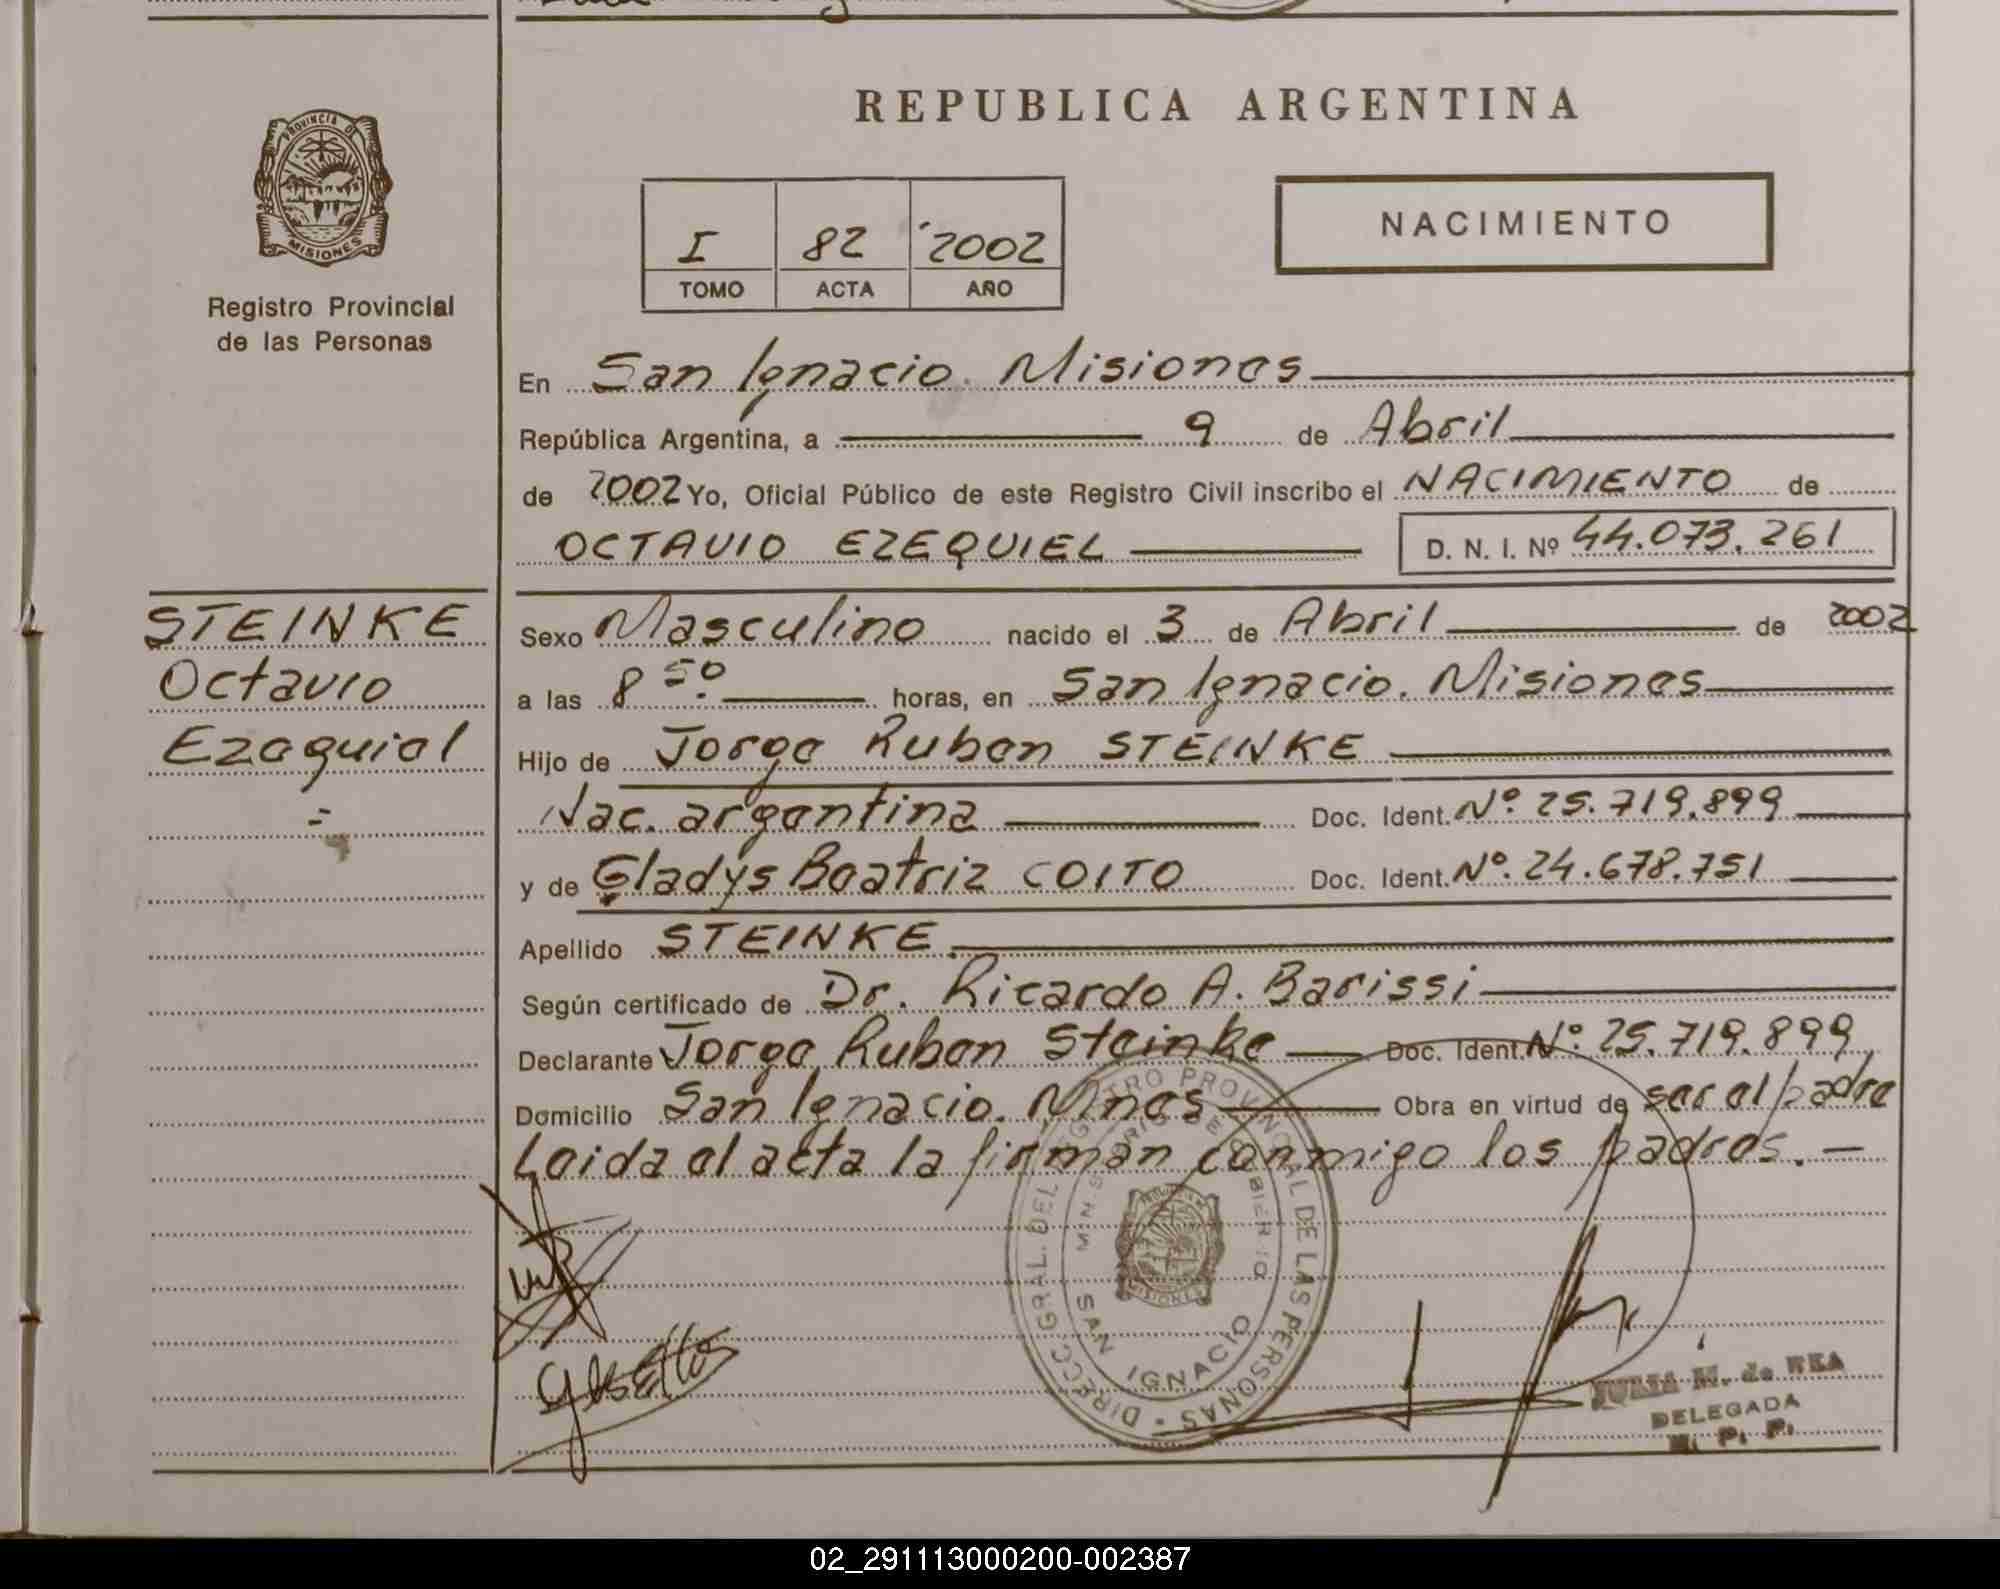 REPUBLICA ARGENTINA
PROVINCIA DE
MISIONES
Registro Provincial
de las Personas
I 82 2002
TOMO ACTA AÑO
NACIMIENTO
En San Ignacio. Misiones
República Argentina, a 9 de Abril
de 2002 Yo, Oficial Público de este Registro Civil inscribo el NACIMIENTO de
OCTAVIO EZEQUIEL D. N. I. Nº 44.073.261
STEINKE
Octavio
Ezequiel
Sexo Masculino nacido el 3 de Abril de 2002
a las 8 50 horas, en San Ignacio. Misiones
Hijo de Jorge Ruben STEINKE
Nac. argentina Doc. Ident. Nº. 25.719.899
y de Gladys Beatriz COITO Doc. Ident. Nº. 24.678.751
Apellido STEINKE
Según certificado de Dr. Ricardo A. Barissi
Declarante Jorge Ruben Steinke Doc. Ident. Nº: 25.719.899
Domicilio San Ignacio. Mnes Obra en virtud de ser el padre
Leida el acta la firman conmigo los padres. —
DIRECC. GRAL. DEL REGISTRO PROVINCIAL DE LAS PERSONAS
MINISTERIO DE GOBIERNO
MISIONES
SAN IGNACIO
JULIA M. de REA
DELEGADA
R. P. P.
02_291113000200-002387